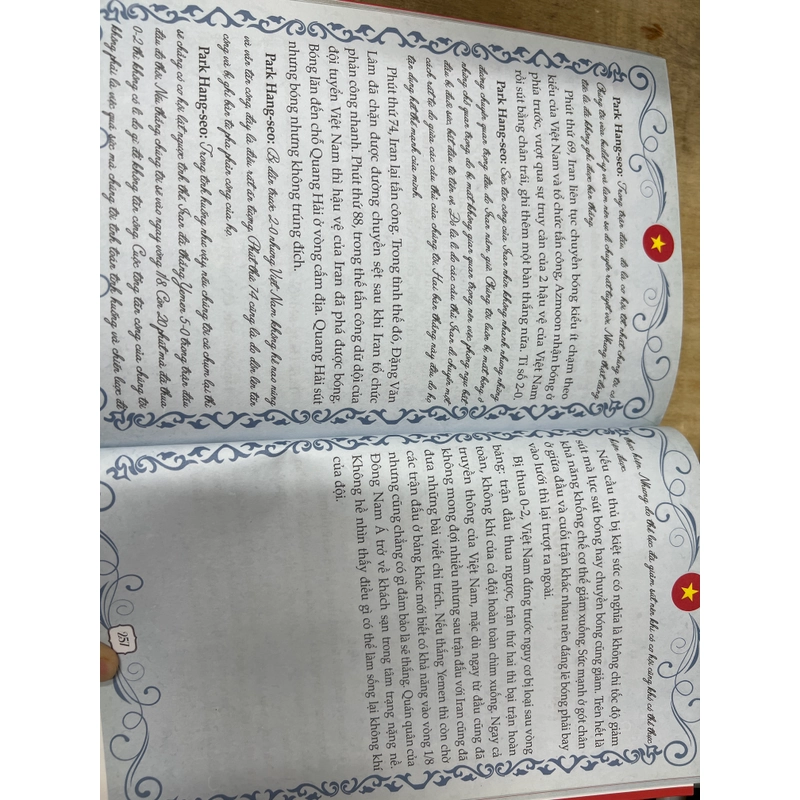 Park Hang-seo: Trong trận đấu, đó là cơ hội tốt nhất chúng tôi có.
Chúng tôi vừa build-up và làm nên sự di chuyển rất tuyệt vời. Nhưng thất đáng
tiếc là đã không ghi được bàn thắng.
Phút thứ 69, Iran liên tục chuyền bóng kiểu ít chạm theo
kiểu của Việt Nam và tổ chức tấn công. Azmoon nhận bóng ở
phía trước, vượt qua sự truy cản của 2 hậu vệ của Việt Nam
rồi sút bằng chân trái, ghi thêm một bàn thắng nữa. Tỉ số 2-0.
Park Hang-seo: Sức tấn công của Iran nhìn không nhanh nhưng những
đường chuyền quan trọng đều do Iran nắm giữ. Chúng tôi luôn bị mất bóng ở
những chỗ quan trọng do bị mất không gian quan trọng nên việc phòng ngự bắt
đầu bị đuối sức bắt đầu từ tiền vệ. Đó là lí do các cầu thủ Iran di chuyển một
cách rất tự do giữa các cầu thủ của chúng tôi. Hai bàn thắng này đều do họ
tận dụng hết thế mạnh của mình.
Phút thứ 74, Iran lại tấn công. Trong tình thế đó, Đặng Văn
Lâm đã chặn được đường chuyền sệt sau khi Iran tổ chức
phản công nhanh. Phút thứ 88, trong thế tấn công dữ dội của
đội tuyển Việt Nam thì hậu vệ của Iran đã phá được bóng.
Bóng lăn đến chỗ Quang Hải ở vòng cấm địa. Quang Hải sút
nhưng bóng nhưng không trúng đích.
Park Hang-seo: Bị dẫn trước 2-0 nhưng Việt Nam không hề nao núng
và vẫn tấn công, đây là điều rất ấn tượng. Phút thứ 74 cũng là do dồn lên tấn
công và bị ghi bàn từ pha phản công của họ.
Park Hang-seo: Trong tình huống như vậy, nếu chúng tôi co chụm lại thì
sẽ chẳng có cơ hội lật ngược tình thế. Iran đã thắng Yemen 5-0 trong trận đấu
đầu đó thôi. Nếu thắng, chúng tôi sẽ vào ngay vòng 1/8. Còn 20 phút mà đã thua
0-2 thì không có lí do gì để không tấn công. Cuộc tổng tấn công của chúng tôi
không phải là việc quá sức mà chúng tôi tính toán tình huống và chiến lược để
thực hiện. Nhưng do thể lực đã giảm sút nên khi có cơ hội cũng khó có thể thực
hiện được.
Nếu cầu thủ bị kiệt sức có nghĩa là không chỉ tốc độ giảm
sút mà lực sút bóng hay chuyền bóng cũng giảm. Trên hết là
khả năng khống chế cơ thể giảm xuống. Sức mạnh ở gót chân
ở giữa đầu và cuối trận khác nhau nên đáng lẽ bóng phải bay
vào lưới thì lại trượt ra ngoài.
Bị thua 0-2, Việt Nam đứng trước nguy cơ bị loại sau vòng
bảng: trận đầu thua ngược, trận thứ hai thì bại trận hoàn
toàn, không khí của cả đội hoàn toàn chìm xuống. Ngay cả
truyền thông của Việt Nam, mặc dù ngay từ đầu cũng đã
không mong đợi nhiều nhưng sau trận đấu với Iran cũng đã
đưa những bài viết chỉ trích. Nếu thắng Yemen thì còn chờ
các trận đấu ở bảng khác mới biết có khả năng vào vòng 1/8
nhưng cũng chẳng có gì đảm bảo là sẽ thắng. Quán quân của
Đông Nam Á trở về khách sạn trong tâm trạng nặng nề.
Không hề nhìn thấy điều gì có thể làm sống lại không khí
của đội.
251